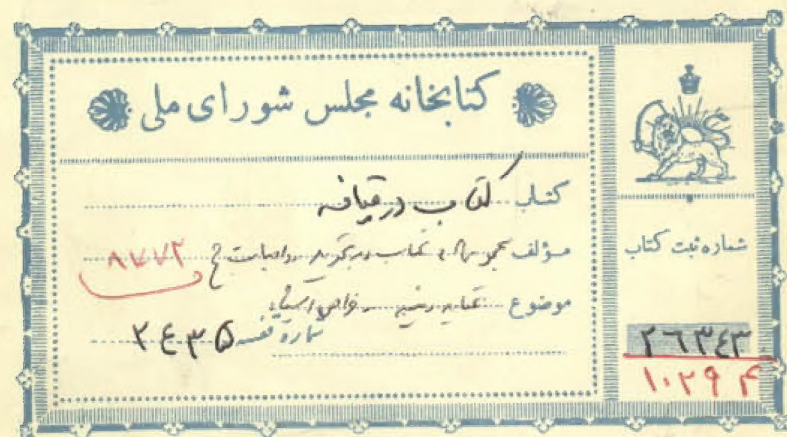 کتابخانه مجلس شورای ملی
کتاب کتاب در قیافه
مؤلف مجموعه کتاب در تجوید ۸۷۷۲
موضوع عقاید دینیه خواص اشیاء
شماره قفسه ۲۴۳۵
شماره ثبت کتاب
۲۶۳۴۳
۱۰۲۹۴